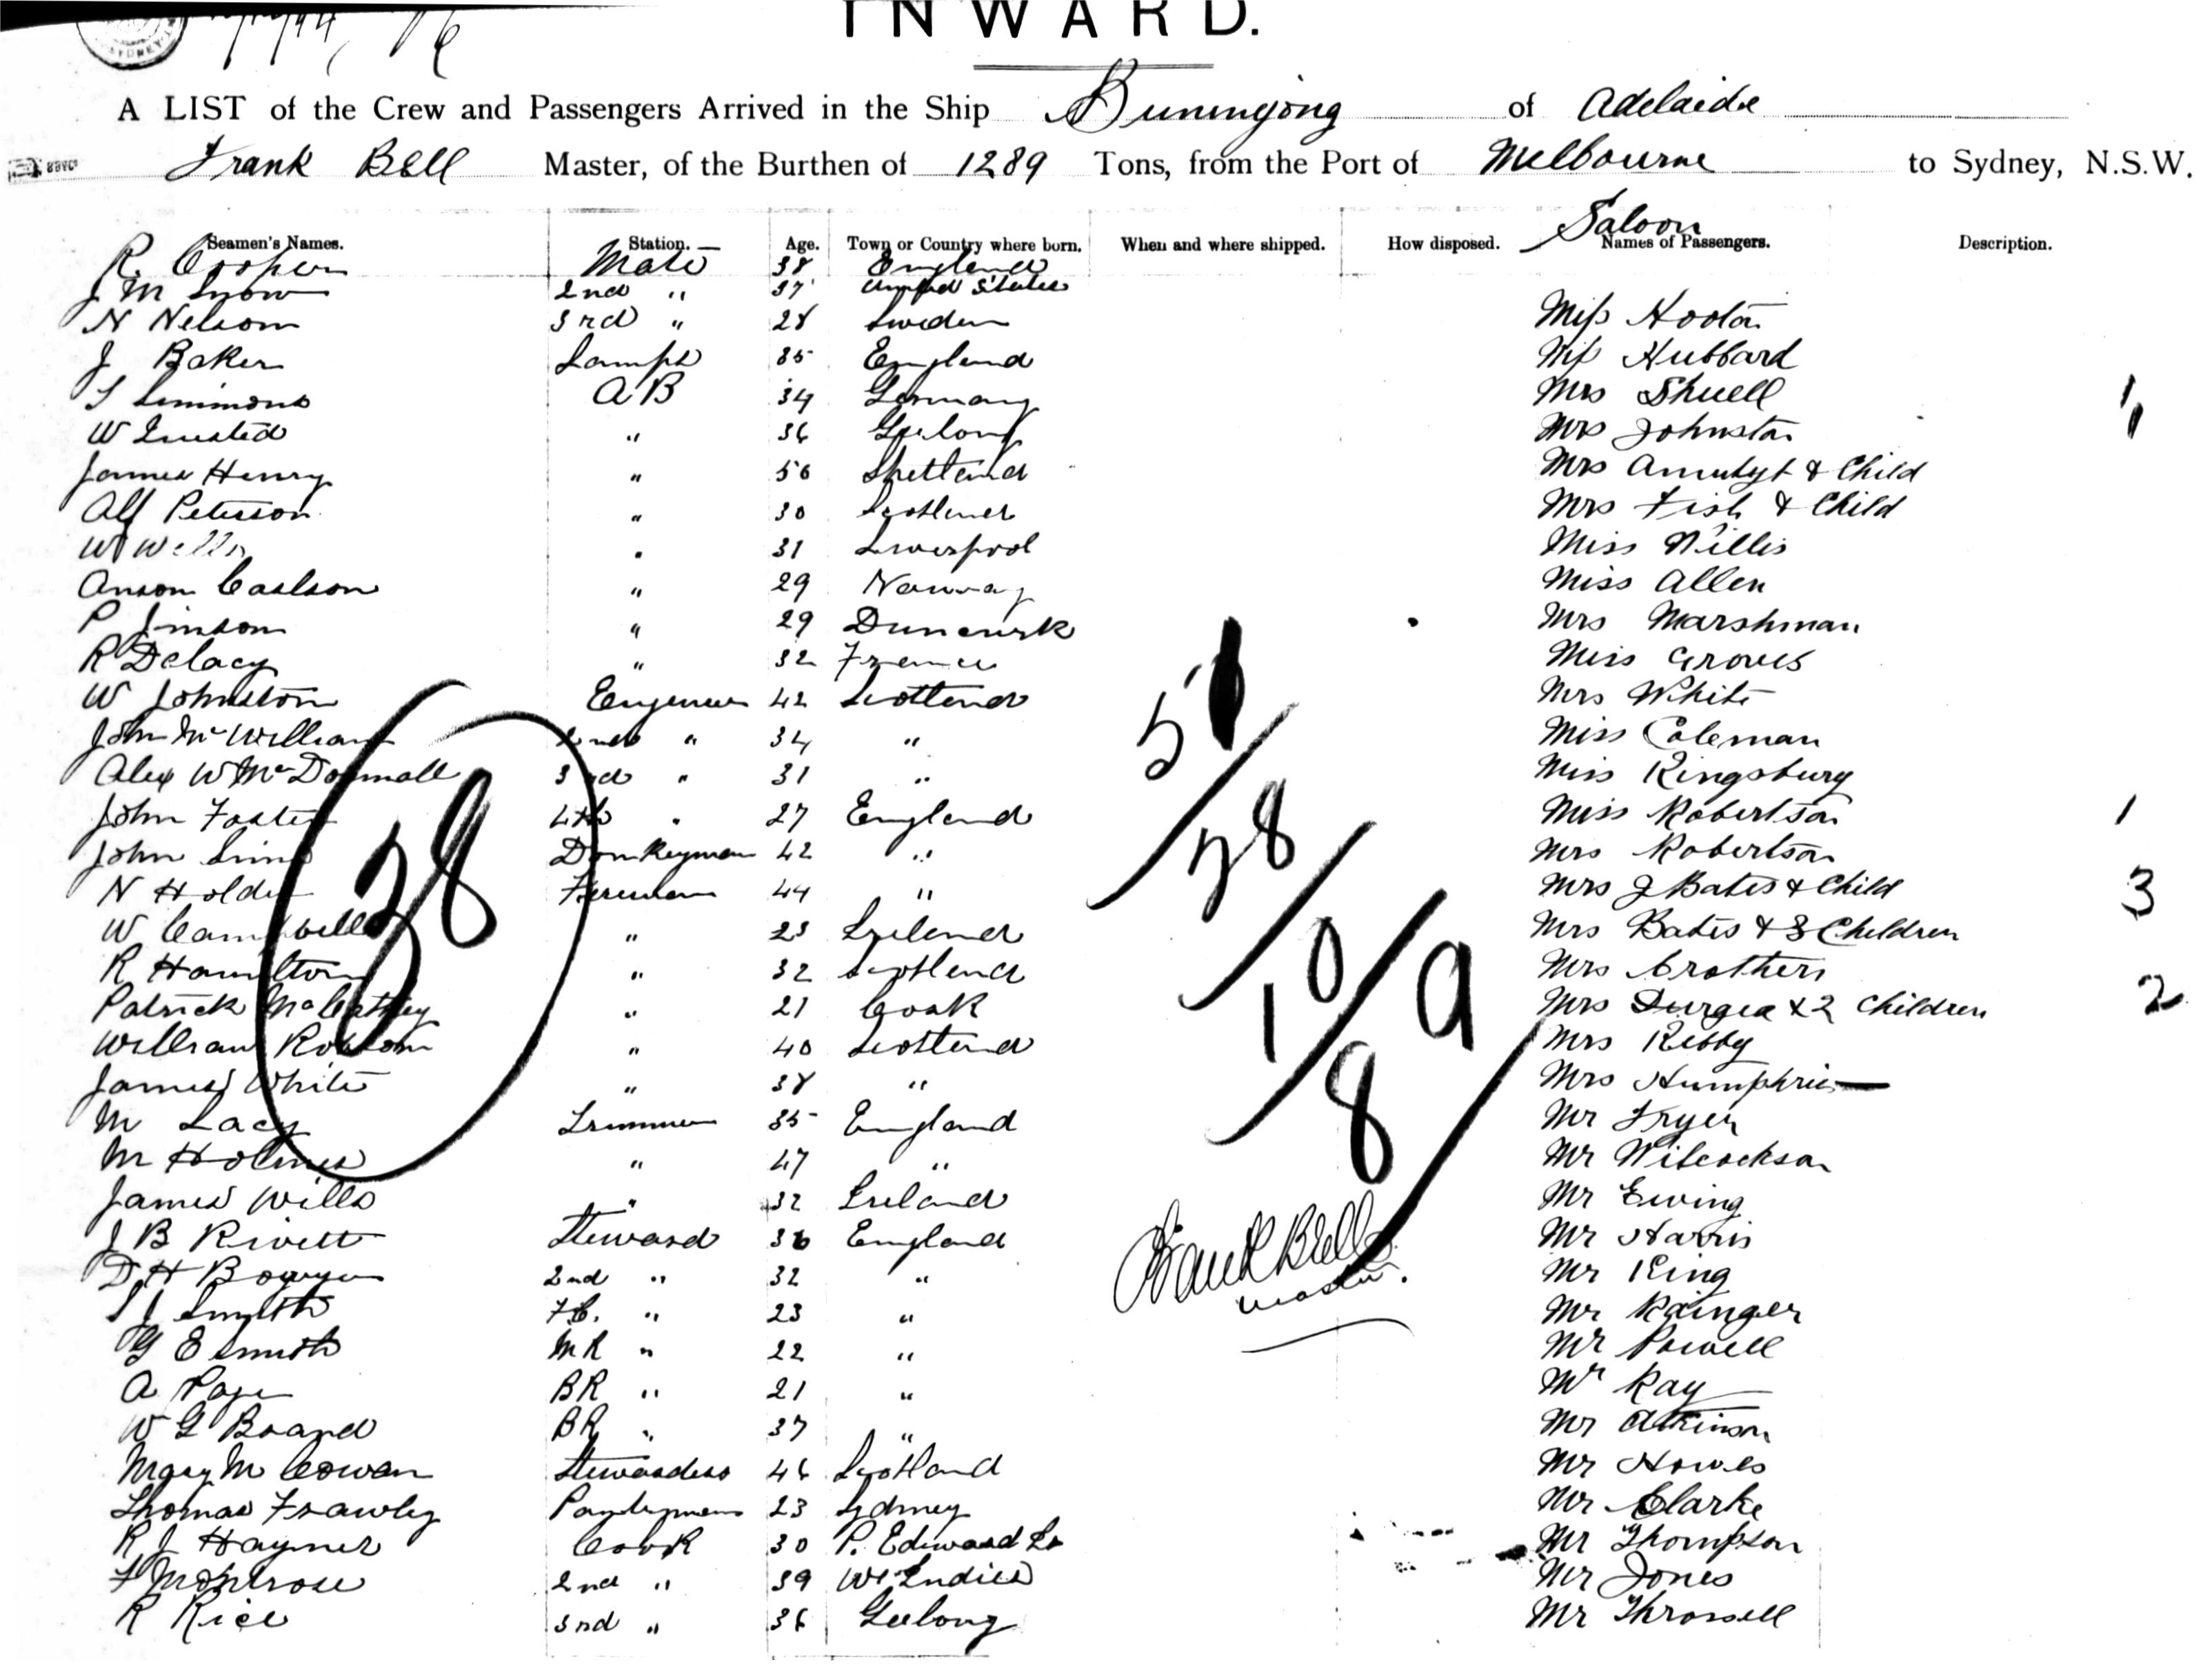 INWARD.
A LIST of the Crew and Passengers Arrived in the Ship Buninyong of Adelaide
Frank Bell Master, of the Burthen of 1289 Tons, from the Port of Melbourne to Sydney, N.S.W.
Saloon
Seamen's Names. Station. Age. Town or Country where born. When and where shipped. How disposed. Names of Passengers. Description.
R. Cooper Mate 38 England
J M Snow 2nd " 37 United States
N Nelson 3rd " 28 Sweden Miss Hooton
J Baker Lamps 35 England Miss Hubbard
Simmons AB 34 Germany Mrs Shuell 1
W " 36 Geelong Mrs Johnston 1
James Henry " 56 Shetland Mrs & Child
Alf Peterson " 30 Scotland Mrs Fish & Child
W Wells " 31 Liverpool Miss Willis
Anson Carlson " 29 Norway Miss Allen
P Jinson " 29 Mrs Marshman
R Delacy " 32 France Miss Groves
W Johnston Engineer 42 Scotland Mrs White
John McWilliam 2nd " 34 " Miss Coleman
Alex W McDonnall 3rd " 31 " Miss Kingsbury
John Foster 4th " 27 England Miss Robertson 1
John Donkeyman 42 " Mrs Robertson
N Holder Fireman 44 " Mrs J Bates & Child 3
W Campbell " 23 Ireland Mrs Bates & 3 Children
R Hamilton " 32 Scotland Mrs Crothers
Patrick McCarthy " 21 Cork Mrs Durgea & 2 Children 2
William Robson " 40 Scotland Mrs Kebby
James White " 38 " Mrs Humphries
M Lacy Trimmer 35 England Mr Fryer
M Holmes " 47 " Mr Wilcockson
James Wills " 32 Ireland Mr Ewing
J B Rivett Steward 36 England Mr Harris
D H Bowyer 2nd " 32 " Mr King
J Smyth F.C. " 23 " Mr Rainger
G E Smith MR " 22 " Mr Powell
A Page BR " 21 " Mr Ray
W G Board BR " 37 " Mr Atkinson
Mary M Cowan Stewardess 46 Scotland Mr Howes
Thomas Frawley Pantryman 23 Sydney Mr Clarke
R J Haymes Cook 30 P. Edward Is Mr Thompson
F Montrose 2nd " 39 W Indies Mr Jones
R Rice 3rd " 36 Geelong Mr Throssell
38
5
38
10
8
9
Frank Bell
Master.